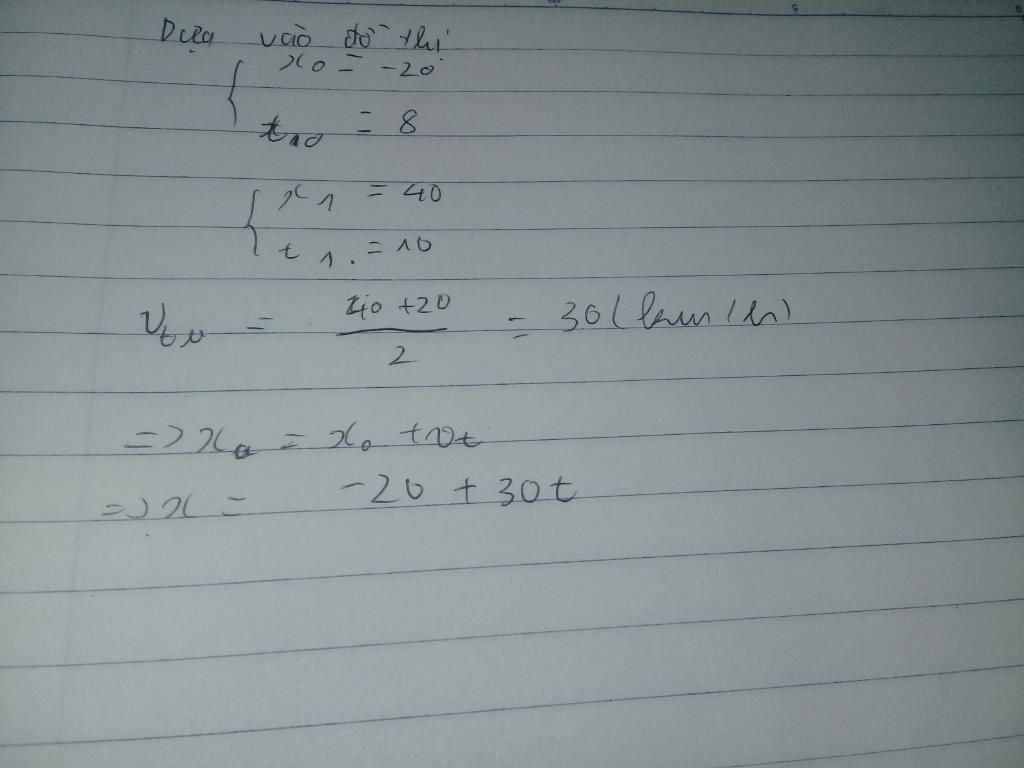 Dựa vào đồ thị
{ x0 = -20
t10 = 8
{ x1 = 40
t1. = 10
= 40 +20 / 2 = 30 (km/h)
=> x = x0 + vt
=> x = -20 + 30t